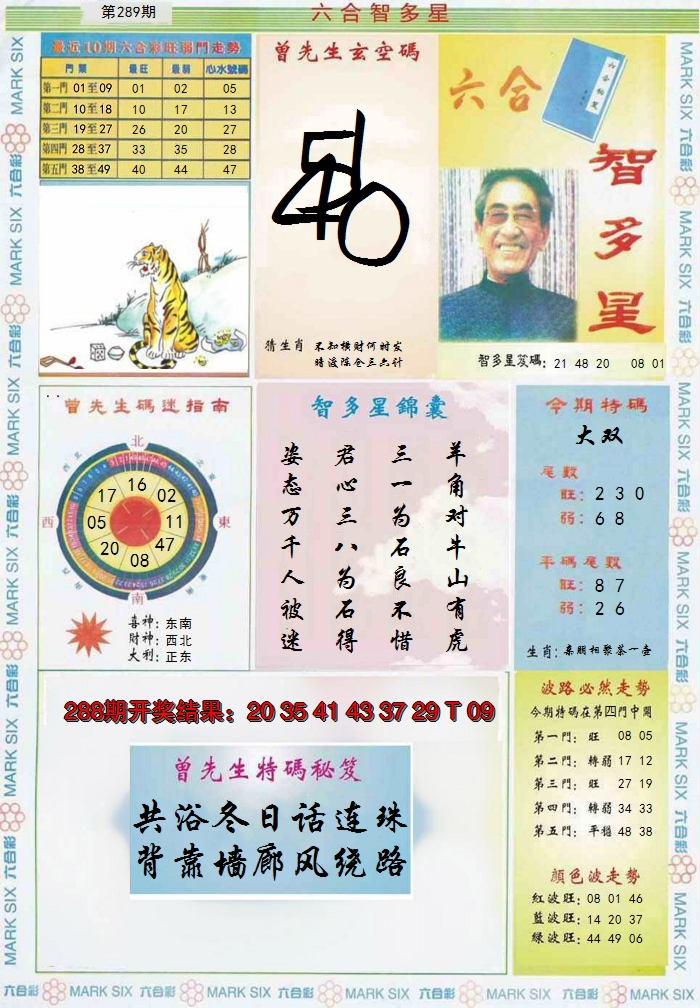 第289期
六合智多星
最近10期六合彩旺弱門走勢
門類 最旺 最弱 心水號碼
第一門 01至09 01 02 05
第二門 10至18 10 17 13
第三門 19至27 26 20 27
第四門 28至37 33 35 28
第五門 38至49 40 44 47
曾先生玄空碼
猜生肖 不知横财何时发
暗渡陈仓三六计
六合
智多星
智多星笈碼: 21 48 20 08 01
曾先生碼迷指南
北
西
東
南
16
02
11
47
08
20
05
17
喜神: 东南
财神: 西北
大利: 正东
智多星錦囊
羊角对牛山有虎
三一为石良不惜
君心三八为石得
姿态万千人被迷
今期特碼
大双
尾數
旺: 2 3 0
弱: 6 8
平碼尾數
旺: 8 7
弱: 2 6
生肖: 亲朋相聚茶一壶
288期开奖结果: 20 35 41 43 37 29 T 09
曾先生特碼秘笈
共浴冬日话连珠
背靠墙廊风绕路
波路必然走勢
今期特碼在第四門中開
第一門: 旺 08 05
第二門: 轉弱 17 12
第三門: 旺 27 19
第四門: 轉弱 34 33
第五門: 平穩 48 38
顏色波走勢
紅波旺: 08 01 46
藍波旺: 14 20 37
綠波旺: 44 49 06
MARK SIX 六合彩